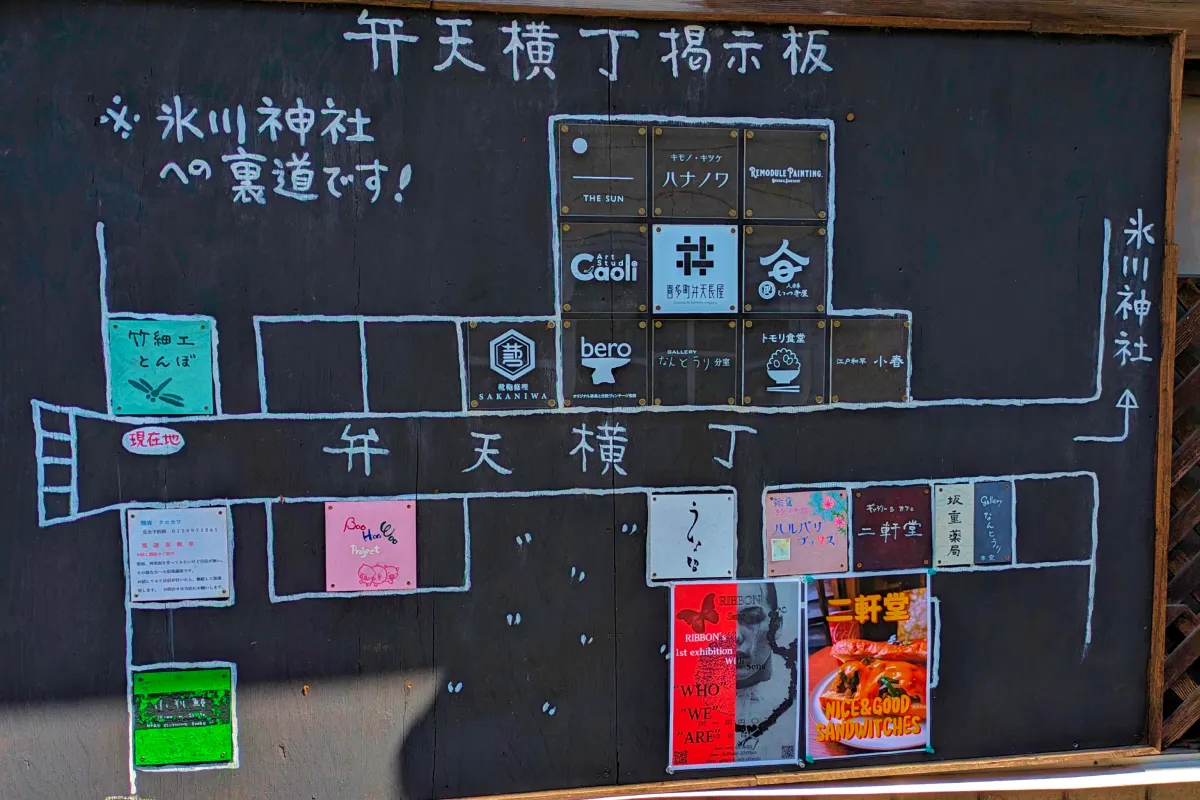 弁天横丁掲示板
※氷川神社
への裏道です!
THE SUN
キモノ・キツケ
ハナノワ
REMODULE PAINTING.
Art
Studio
Caoli
喜多町弁天長屋
いつ寄屋
氷川神社
竹細工
とんぼ
SAKANIWA
bero
GALLERY
なんとうり 分室
トモリ食堂
江戸和竿 小春
現在地
弁天横丁
完全予約制
Boo
Hoo Woo
Project
うょい
ハルバリ
ブックス
ギャラリー & カフェ
二軒堂
坂重薬局
Gallery
なんとうり
本室
RIBBON
RIBBON's
1st exhibition
"WHO"
"WE"
"ARE"
二軒堂
NICE&GOOD
SANDWITCHES